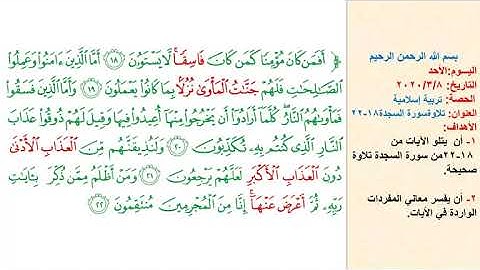 بسم الله الرحمن الرحيم
اليوم:الأحد
التاريخ: ٢٠٢٠/٣/٨
الحصة: تربية إسلامية
العنوان: تلاوةسورة السجدة١٨-٢٢
الأهداف:
١- أن يتلو الآيات من
١٨-٢٢من سورة السجدة تلاوة
صحيحة.
٢- أن يفسر معاني المفردات
الواردة في الآيات.
﴿ أَفَمَن كَانَ مُؤْمِنًا كَمَن كَانَ فَاسِقًا ۚ لَّا يَسْتَوُونَ ١٨ أَمَّا الَّذِينَ ءَامَنُوا وَعَمِلُوا
الصَّالِحَاتِ فَلَهُمْ جَنَّاتُ الْمَأْوَىٰ نُزُلًا بِمَا كَانُوا يَعْمَلُونَ ١٩ وَأَمَّا الَّذِينَ فَسَقُوا
فَمَأْوَاهُمُ النَّارُ ۖ كُلَّمَا أَرَادُوا أَن يَخْرُجُوا مِنْهَا أُعِيدُوا فِيهَا وَقِيلَ لَهُمْ ذُوقُوا عَذَابَ
النَّارِ الَّذِي كُنتُم بِهِ تُكَذِّبُونَ ٢٠ وَلَنُذِيقَنَّهُم مِّنَ الْعَذَابِ الْأَدْنَىٰ
دُونَ الْعَذَابِ الْأَكْبَرِ لَعَلَّهُمْ يَرْجِعُونَ ٢١ وَمَنْ أَظْلَمُ مِمَّن ذُكِّرَ بِـَٔايَاتِ
رَبِّهِ ثُمَّ أَعْرَضَ عَنْهَا ۚ إِنَّا مِنَ الْمُجْرِمِينَ مُنتَقِمُونَ ٢٢